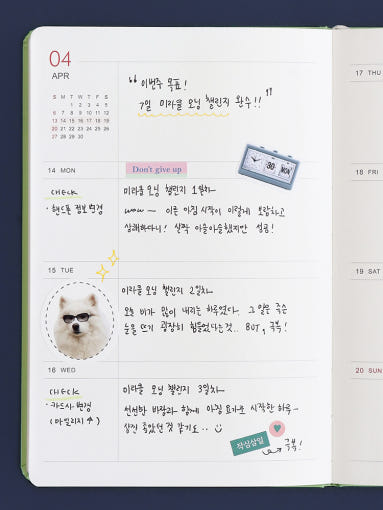 04
APR
S M T W T F S
1 2 3 4 5
6 7 8 9 10 11 12
13 14 15 16 17 18 19
20 21 22 23 24 25 26
27 28 29 30
“ 이번주 목표!
7일 미라클 모닝 챌린지 완수!! ”
30 MON
14 MON
Don't give up
CHECK
· 핸드폰 정보 변경
미라클 모닝 챌린지 1일차~
wow ~ 이른 아침 시작이 이렇게 보람차고
상쾌하다니! 살짝 아슬아슬했지만 성공!
15 TUE
미라클 모닝 챌린지 2일차~
오늘 비가 많이 내리는 하루였다. 그 말은 즉슨
눈을 뜨기 굉장히 힘들었다는 것.. BUT, 극복!
16 WED
CHECK
· 카드사 변경
(마일리지 ↑)
미라클 모닝 챌린지 3일차~
선선한 바람과 함께 아침 요가로 시작한 하루~
상당히 좋았던 것 같기도..
작심삼일
극복!
17 THU
18 FRI
19 SAT
20 SUN